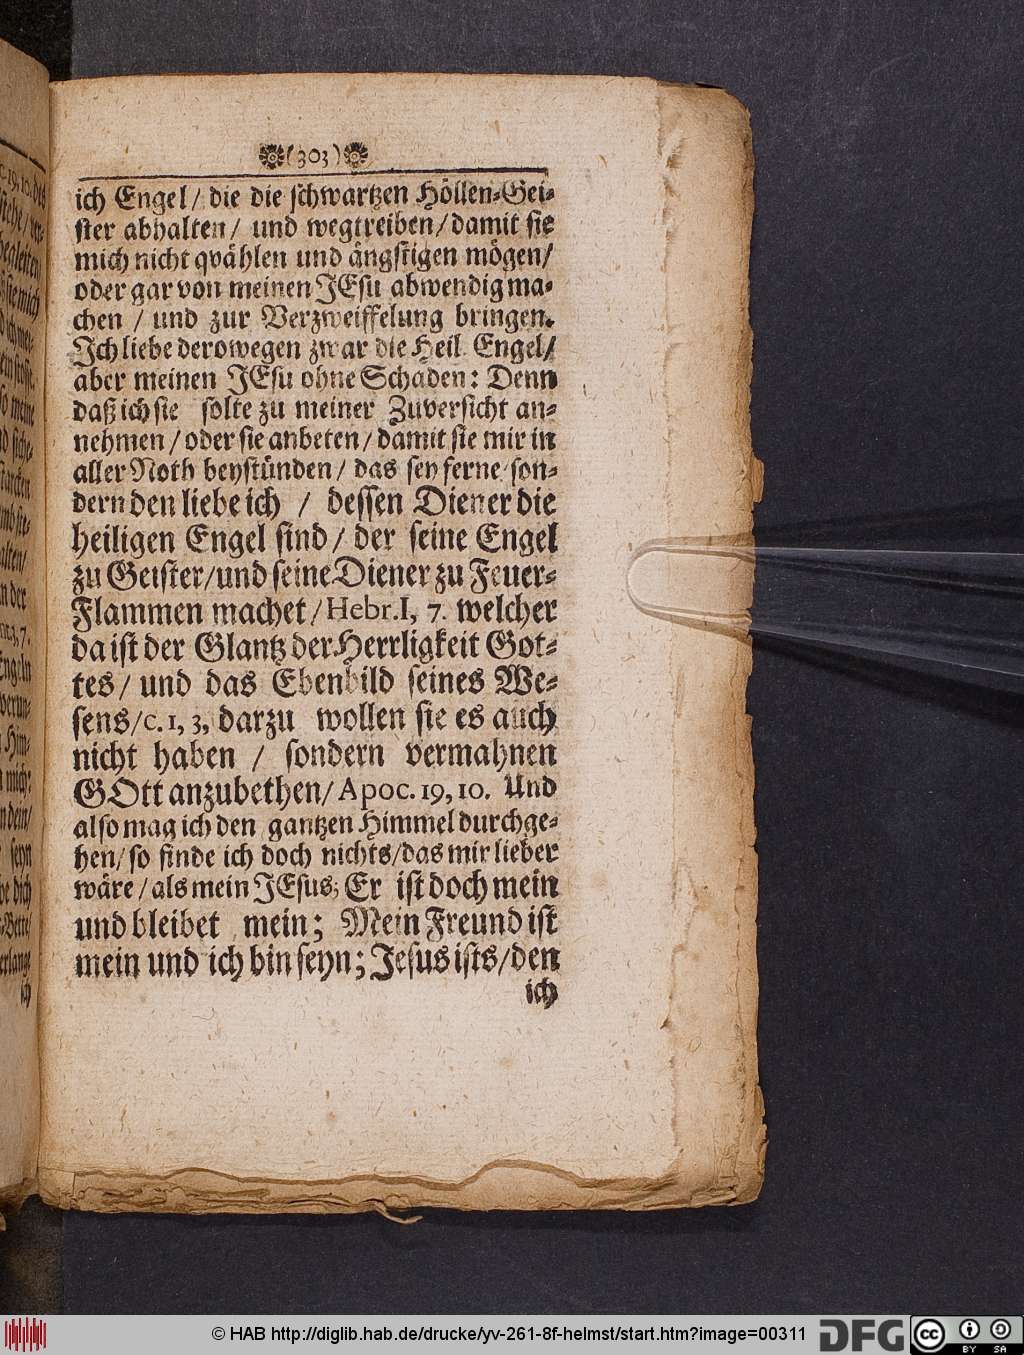 (303)
ich Engel/ die die schwartzen Höllen-Gei-
ster abhalten/ und wegtreiben/ damit sie
mich nicht qvählen und ängstigen mögen/
oder gar von meinen JEsu abwendig ma-
chen / und zur Verzweiffelung bringen.
Jch liebe derowegen zwar die Heil. Engel/
aber meinen JEsu ohne Schaden: Denn
daß ich sie solte zu meiner Zuversicht an-
nehmen / oder sie anbeten/ damit sie mir in
aller Noth beystünden/ das sey ferne/ son-
dern den liebe ich / dessen Diener die
heiligen Engel sind/ der seine Engel
zu Geister/ und seine Diener zu Feuer-
Flammen machet/ Hebr. I, 7. welcher
da ist der Glantz der Herrligkeit Got-
tes/ und das Ebenbild seines We-
sens/ c. 1, 3, darzu wollen sie es auch
nicht haben / sondern vermahnen
GOtt anzubethen/ Apoc. 19, 10. Und
also mag ich den gantzen Himmel durchge-
hen/ so finde ich doch nichts/ das mir lieber
wäre/ als mein JEsus; Er ist doch mein
und bleibet mein; Mein Freund ist
mein und ich bin seyn; Jesus ists/ den
ich
© HAB http://diglib.hab.de/drucke/yv-261-8f-helmst/start.htm?image=00311
DFG
cc BY SA